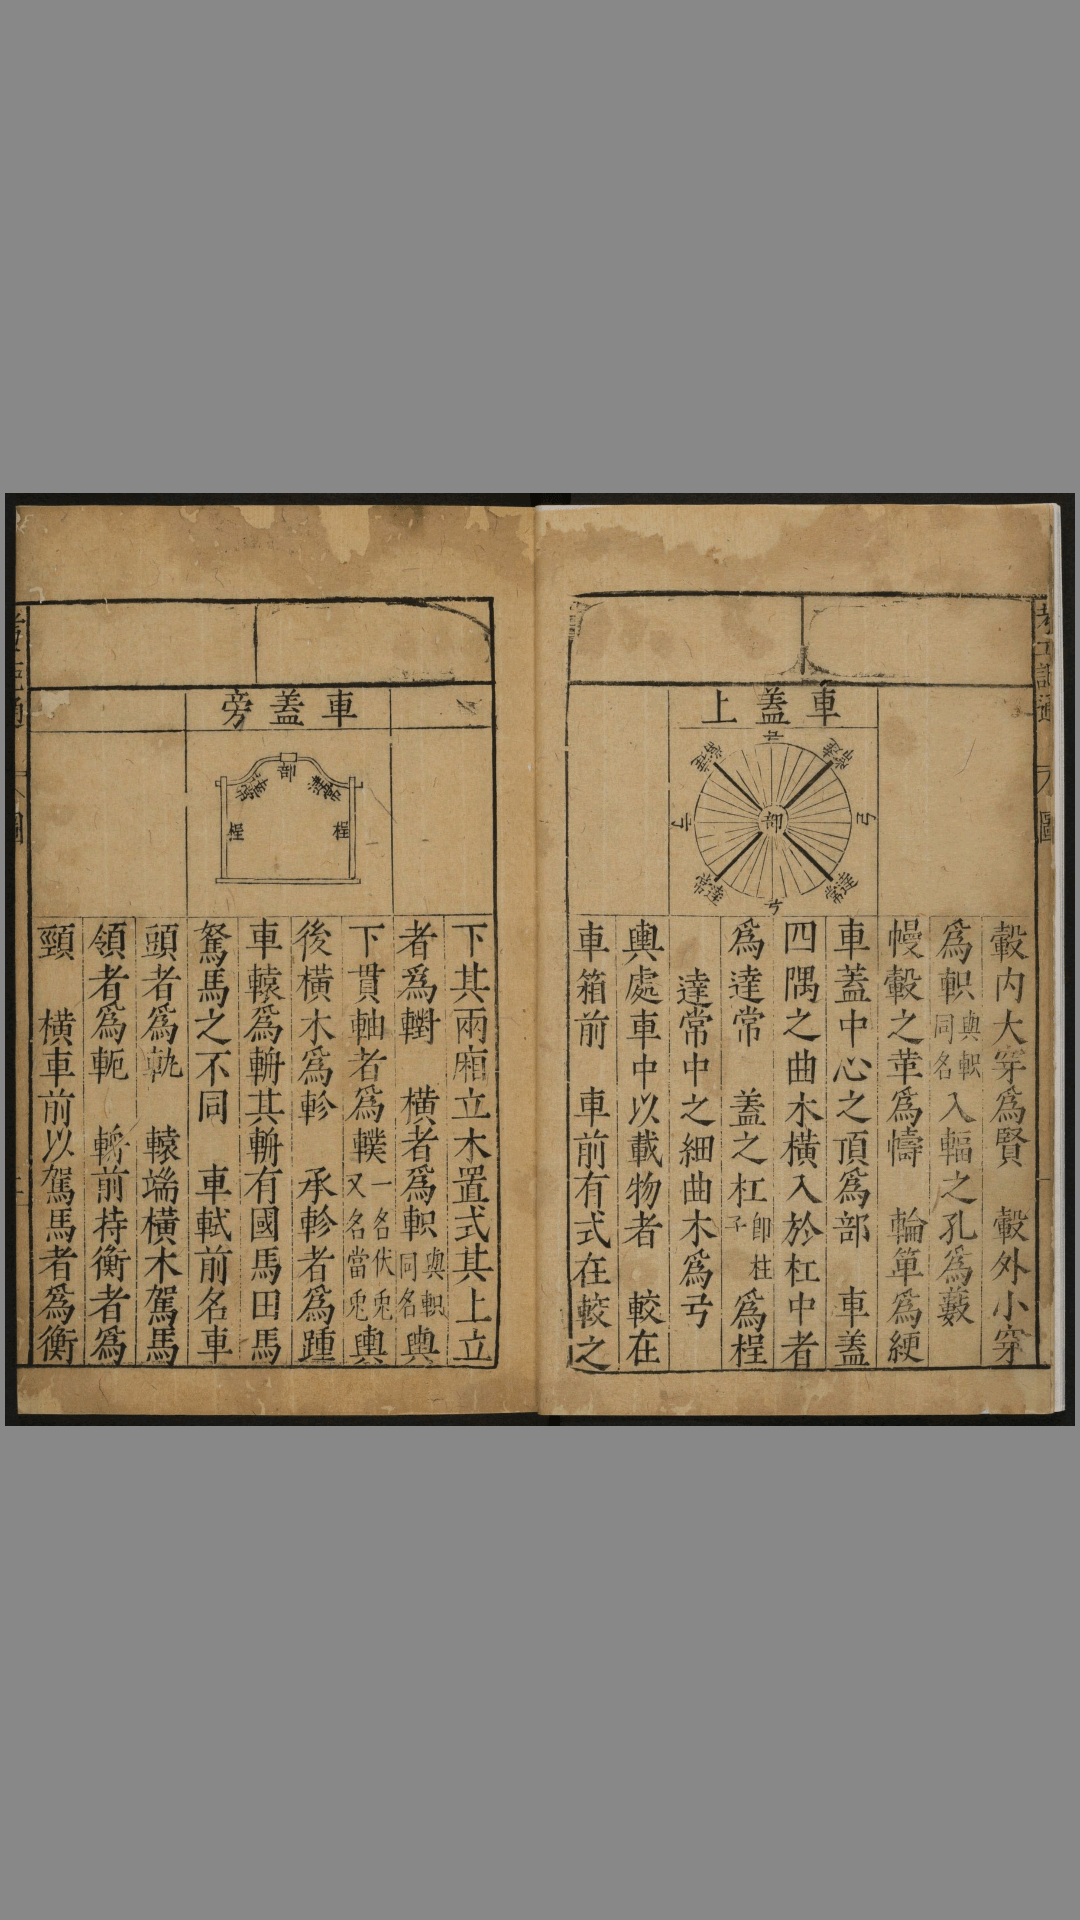 車蓋上
部
達常
達常
達常
達常
弓
弓
轂内大穿爲賢　轂外小穿
爲軹與軹同名入輻之孔爲藪
幔轂之革爲幬　輪箄爲綆
車蓋中心之頂爲部　車蓋
四隅之曲木橫入於杠中者
爲達常　蓋之杠卽柱子爲桯
達常中之細曲木爲弓
輿處車中以載物者　較在
車箱前　車前有式在較之
車蓋旁
部
達常
達常
桯
桯
下其兩廂立木置式其上立
者爲轛　橫者爲軹與軹同名輿
下貫軸者爲轐一名伏兎又名當兎輿
後橫木爲軫　承軫者爲踵
車轅爲輈其輈有國馬田馬
駑馬之不同　車軾前名車
頭者爲軓　轅端橫木駕馬
領者爲軛　輈前持衡者爲
頸　橫車前以駕馬者爲衡